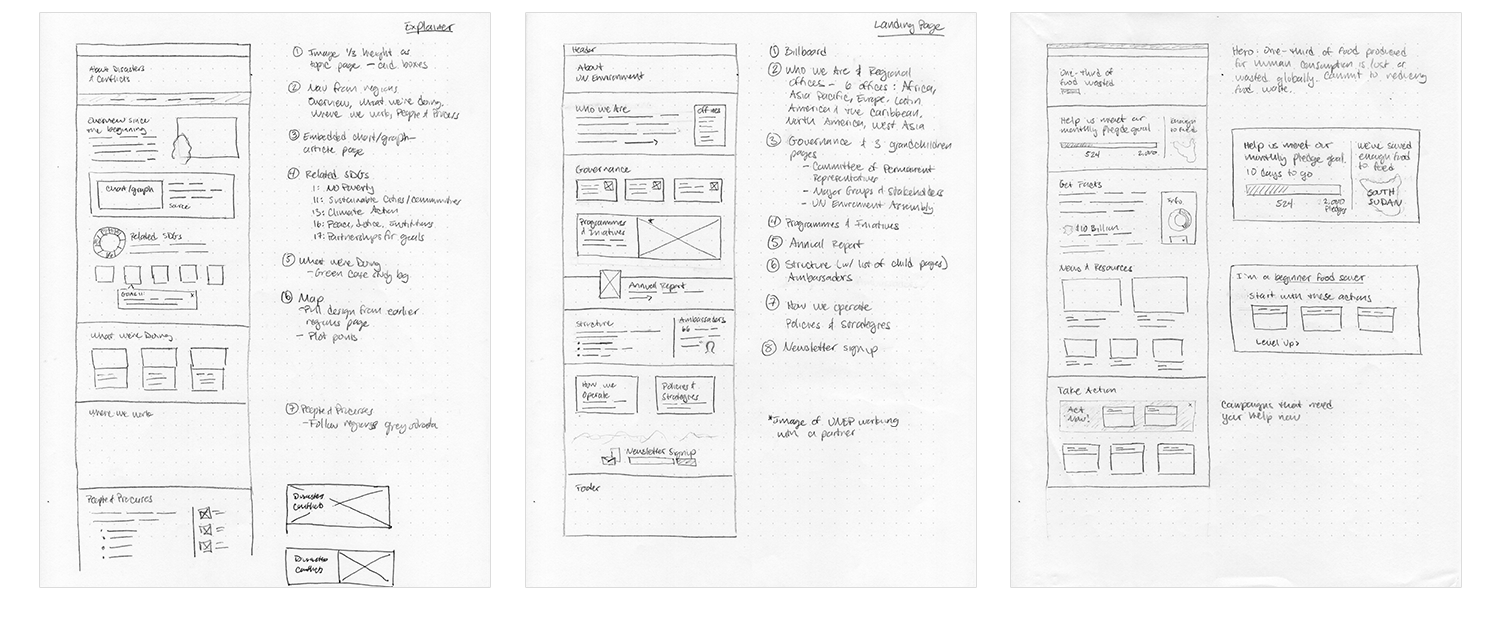 Explainer
About Disasters
& Conflicts
Overview since
the beginning
Chart/graph
source
Related SDGs
Goal 11:
x
What we're Doing
Where we work
People & Processes
① Image 1/3 height as
topic page – add boxes
② Nav from regions
Overview, what we're doing,
where we work, People & Process
③ Embedded chart/graph –
article page
④ Related SDGs
1: No Poverty
11: Sustainable Cities/Communities
13: Climate Action
16: Peace, Justice, Institutions
17: Partnerships for goals
⑤ What we're Doing
– Green Case study bg
⑥ Map
– Pull design from earlier
regions page
– Plot points
⑦ People & Processes
– Follow regions grey
Disasters
Conflicts
Disasters
Conflicts
Landing Page
Header
About
UN Environment
Who we Are
Offices
Governance
Programmes
& Initiatives
*
Annual Report
Structure
Ambassadors
How we
Operate
Policies &
Strategies
Newsletter signup
Footer
① Billboard
② Who we Are & Regional
offices – 6 offices: Africa,
Asia Pacific, Europe, Latin
America & the Caribbean,
North America, West Asia
③ Governance & 3 grandchildren
pages
– Committee of Permanent
Representatives
– Major Groups & Stakeholders
– UN Environment Assembly
④ Programmes & Initiatives
⑤ Annual Report
⑥ Structure (w/ list of child pages)
Ambassadors
⑦ How we operate
Policies & Strategies
⑧ Newsletter signup
*Image of UNEP working
with a partner
One-third of
food wasted
Help us meet our
monthly pledge goal
524 2,000
Enough
to feed
Get Facts
Info
$10 Billion
News & Resources
Take Action
Act
Now!
x
Hero: One-third of food produced
for human consumption is lost or
wasted globally. Commit to reducing
food waste.
Help us meet our
monthly pledge goal.
10 days to go
524 2,000
Pledges
We've saved
enough food
to feed
SOUTH
SUDAN
I'm a beginner food saver
Start with these actions
Level Up >
Campaigns that need
your help now